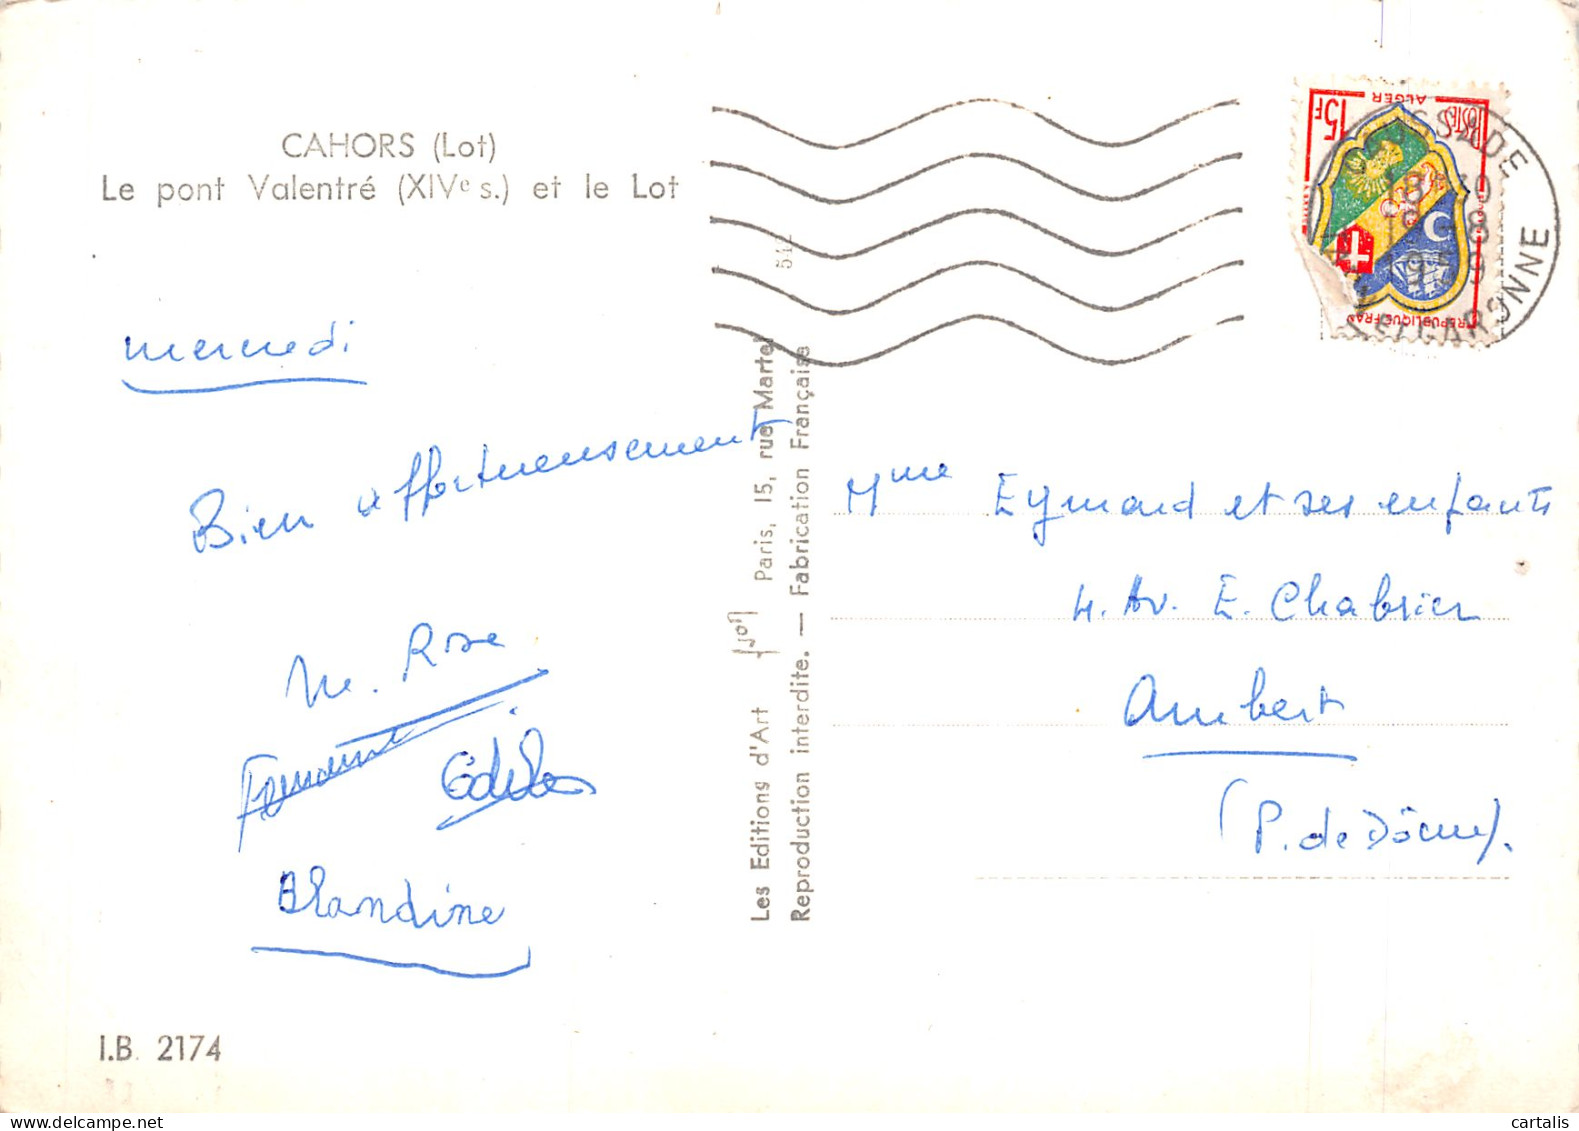 CAHORS (Lot)
Le pont Valentré (XIVe s.) et le Lot
mercredi
Bien affectueusement
M. Rose
Blandine
I.B. 2174
Les Editions d'Art yvon Paris, 15, rue Martel
Reproduction interdite. — Fabrication Française
POSTES 15F
ALGER
REPUBLIQUE FRAN
1959
GARONNE
Mme Eymard et ses enfants
4. Av. E. Chabrier
Ambert
(P. de Dôme).
cartalis